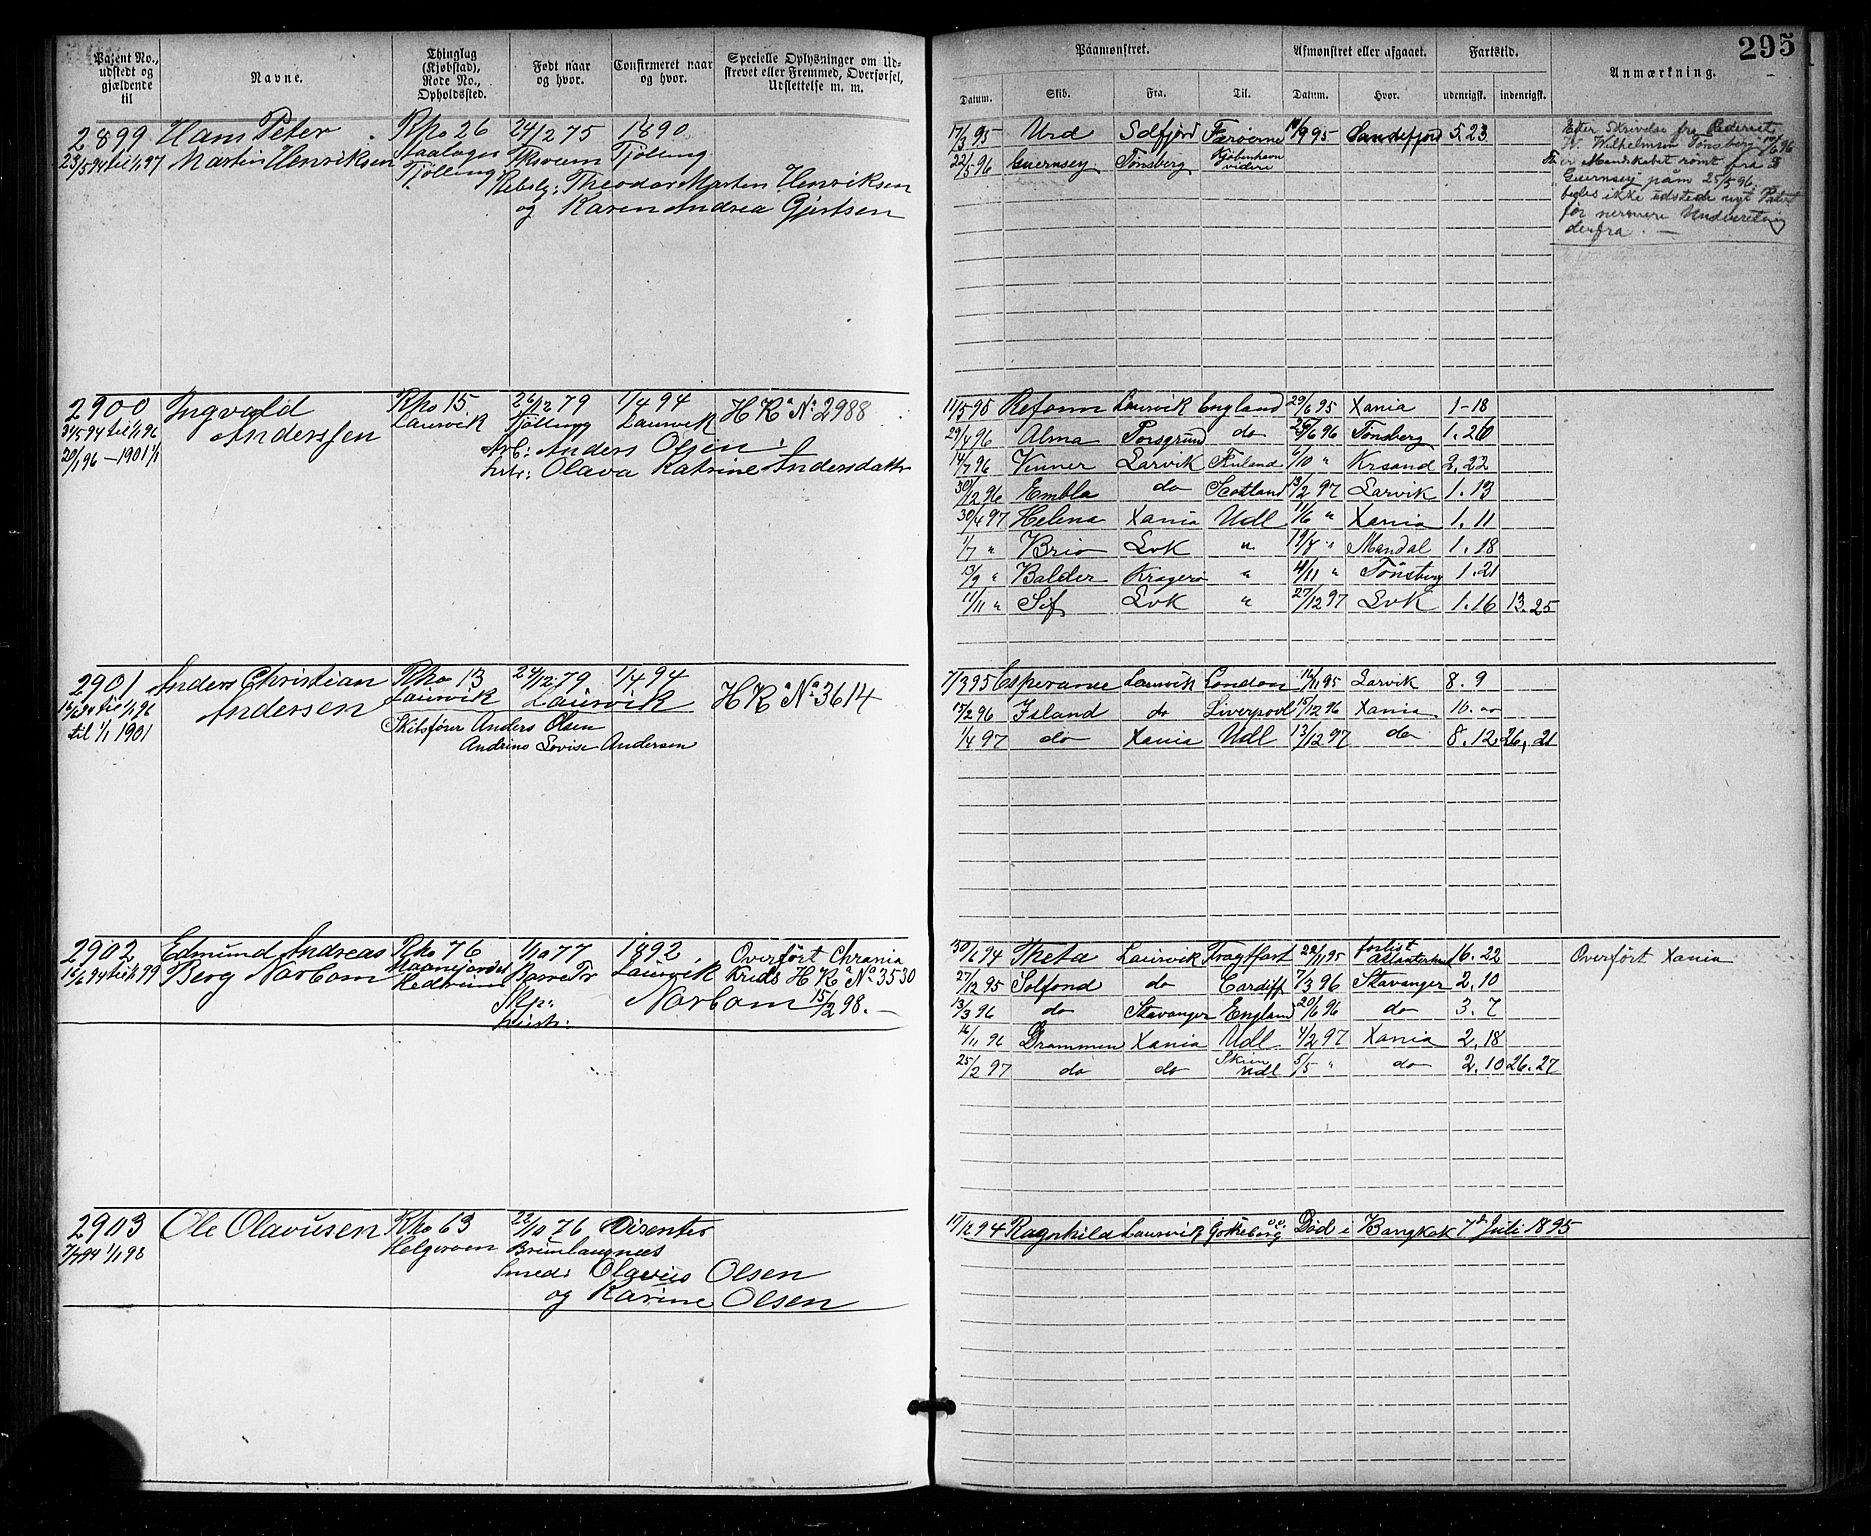 295
Patent No., udstedt og gjældende til
Navne.
Thinglag (Kjøbstad), Rode No., Opholdssted.
Født naar og hvor.
Confirmeret naar og hvor.
Specielle Oplysninger om Udskrevet eller Fremmed, Overførsel, Udslettelse m. m.
Paamønstret.
Afmønstret eller afgaaet.
Fartstid.
Anmærkning.
Datum. Skib. Fra. Til. Datum. Hvor. udenrigsk. indenrigsk.
2899 Hans Peter Rho 26 24/12 75 1890
23/5 94 til 1/1 97 Martin Henriksen Tjølling
Tjølling Theodor Martin Henriksen
og Karen Andrea Gjertsen
17/3 95 Urd Færøerne 95 Sandefjord 5.23
22/5 96 Guernsey Tønsberg Kjøbenhavn videre
Efter Skrivelse fra Rederiet
W. Wilhelmsen Tønsberg
er Mandskabet rømt fra
Guernsey paam 25/5 96
ikke udstede nyt Patent
før nermere Underretning
derfra.
2900 Ingvald Rho 15 26/12 79 1/4 94 H R a No 2988
31/5 94 til 1/1 96 Anderssen Laurvik Tjølling Laurvik
20/1 96 — 1901 1/1 Arb: Anders Olsen
Olava Katrine Andersdatter
11/5 95 Reform Laurvik England 29/6 95 Xania 1-18
29/4 96 Alma Porsgrund do 25/6 96 Tønsberg 1.26
14/7 96 Venner Larvik 6/10 " Krsand 2.22
30/12 96 Embla do Scotland 13/2 97 Larvik 1.13
30/4 97 Helena Xania Udl 11/6 " Xania 1.11
1/7 " Brio Lvk " 19/8 " Mandal 1.18
13/9 " Balder Kragerø " 4/11 " Tønsberg 1.21
11/11 " Sif Lvk " 27/12 97 Lvk 1.16 13.25
2901 Anders Christian Rho 13 24/12 79 1/4 94 H R a No 3614
til 1/1 96 Andersen Laurvik Laurvik
til 1/1 1901 Skibsfører Anders Olsen
Andrine Lovise Andersen
7/3 95 Esperance Laurvik London 16/11 95 Larvik 8.9
15/2 96 Island do Liverpool 15/12 96 Xania 10.00
1/4 97 do Xania Udl 13/12 97 do 8.12 26.21
2902 Edmund Andreas Rho 76 1/10 77 1892 Overført Chrania
Berg Narbom Laurvik Kreds H R a No 3530
Narbom 15/2 98.
30/6 94 Theta Laurvik Fragtfart 22/11 95 forlist Atlanterhav 16.22 Overført Xania
27/12 95 Solfond do Cardiff 7/3 96 Stavanger 2.10
13/3 96 do Stavanger England 20/6 96 do 3.7
16/11 96 Drammen Xania Udl 4/2 97 Xania 2.18
25/2 97 do do Skien Udl 5/5 " do 2.10 26.27
2903 Ole Olavusen Rho 63 22/10 76 Disenter
1/1 98 Helgeroen Brunlaugnæs
Smed: Olavus Olsen
og Karine Olsen
94 Ragnhild Laurvik Gøtheborg Død i Bangkok 7de Juli 1895